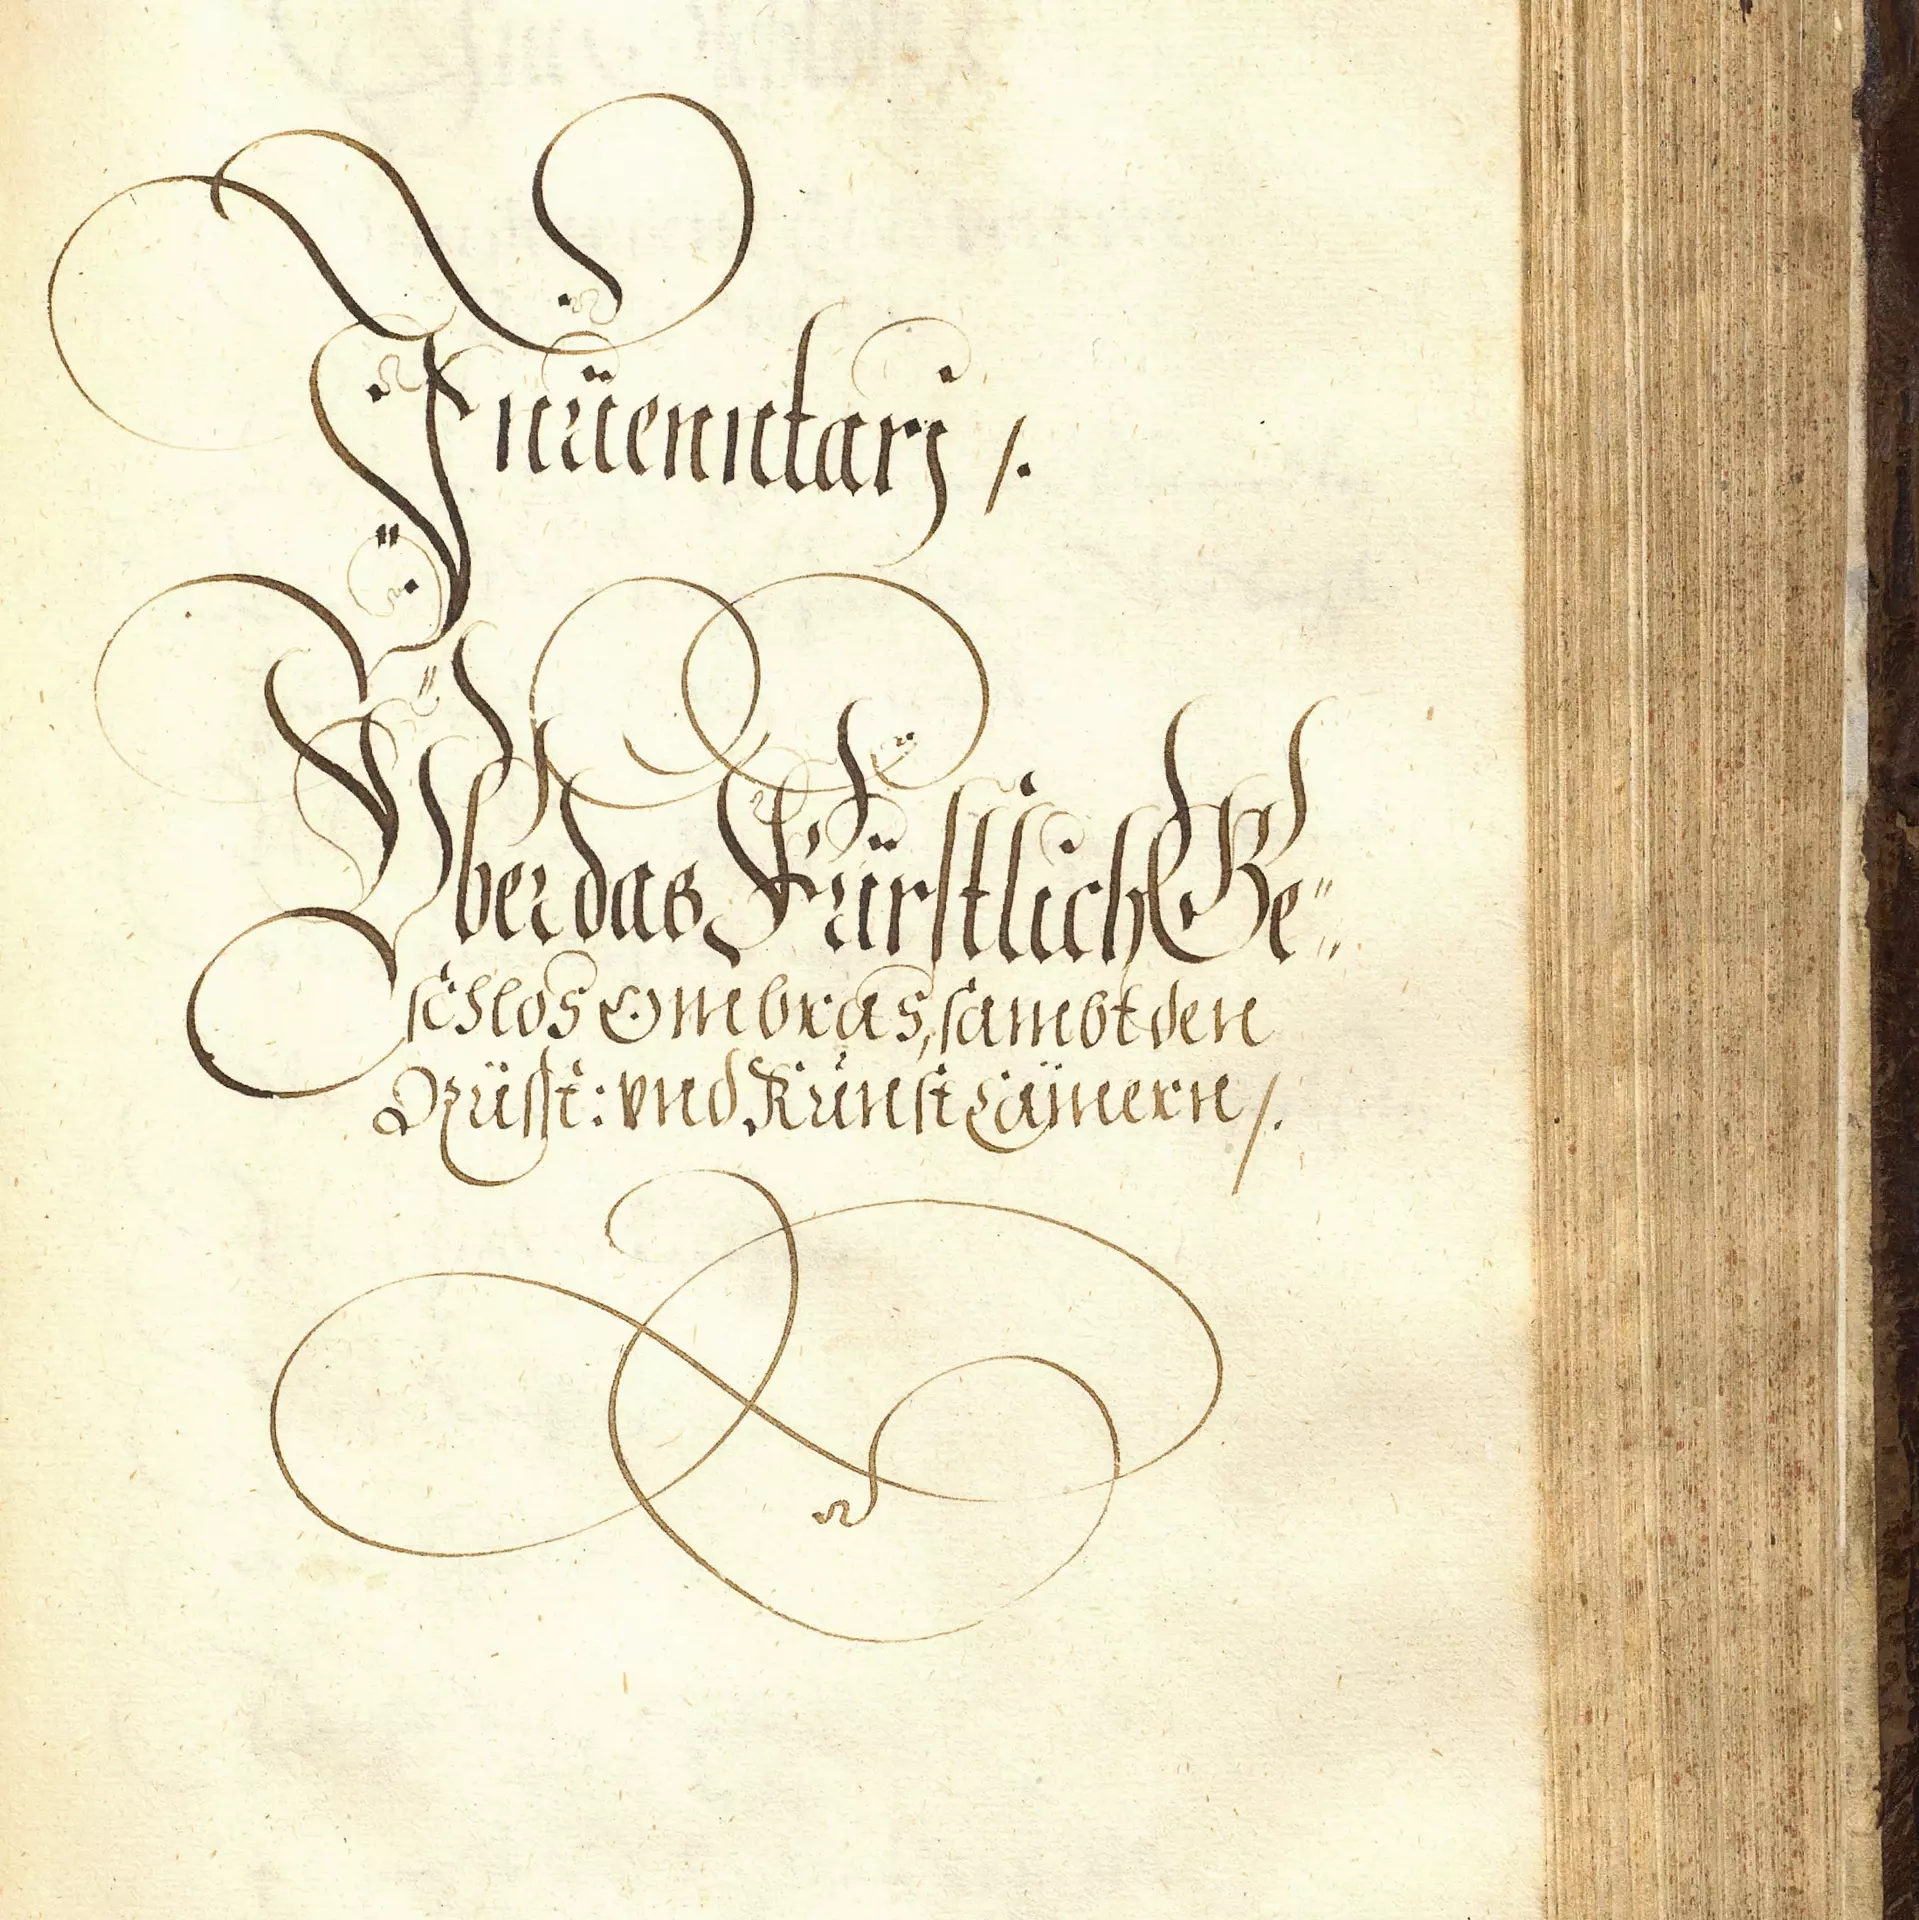 Inüenntarj /.
Vber das Fürstlich Ge=
schlos Ombras, sambt den
Rüsst: vnd Kunst Cämern /.